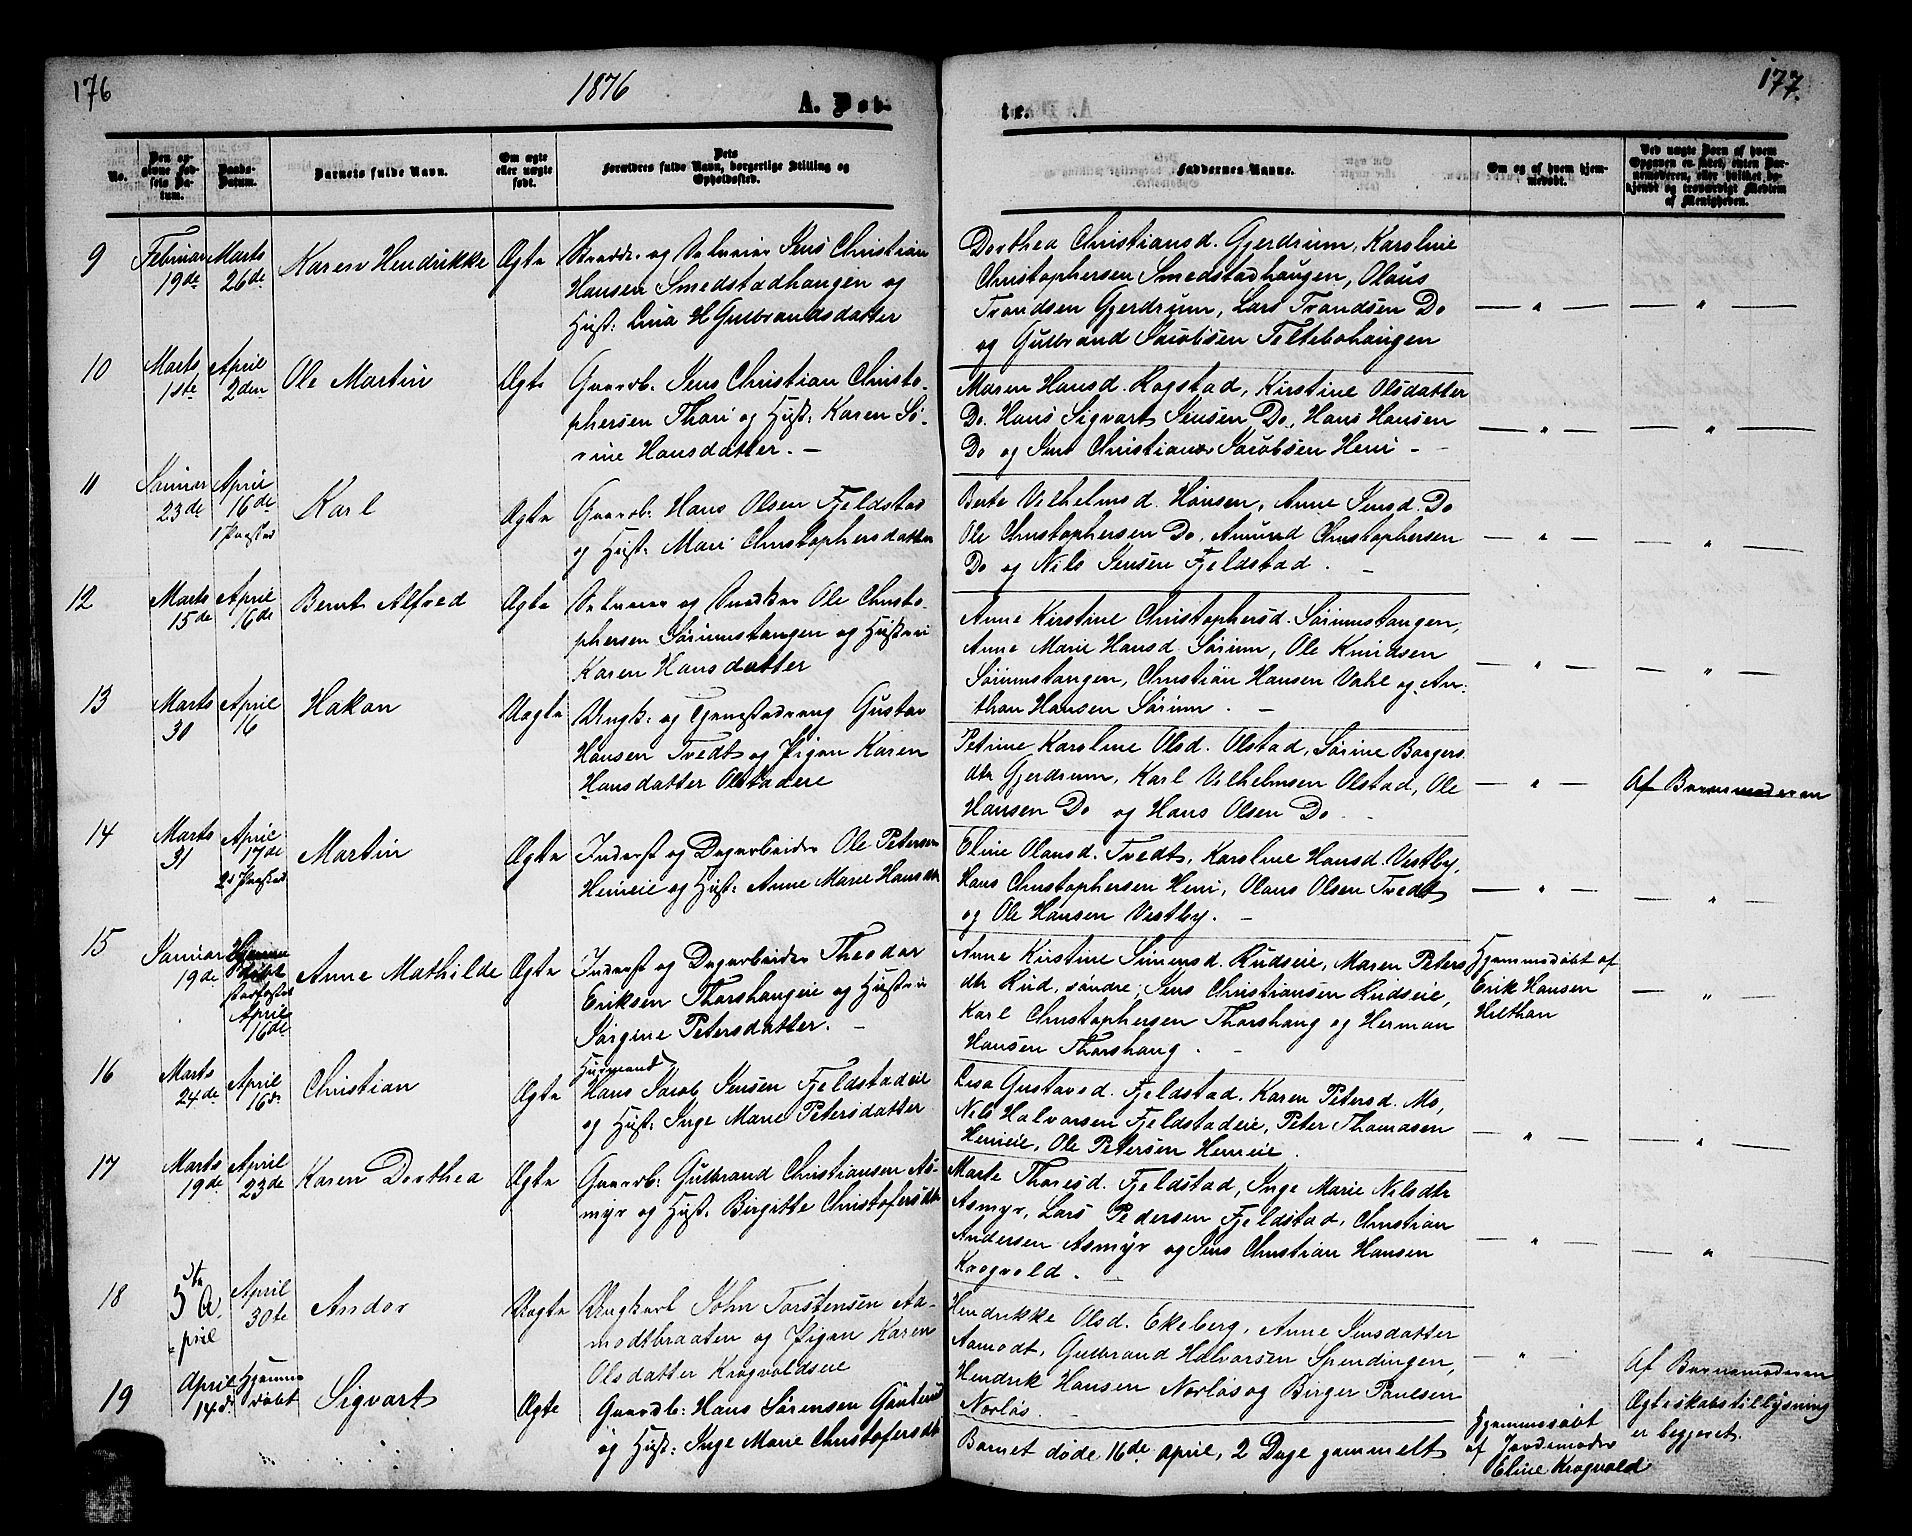 176
1876
A. Død-
te.
177.
No.
Barnets fulde Navn.
Om ægte eller uægte født.
Forældres fulde Navn, borgerlige Stilling og Opholdssted.
Faddernes Navne.
Om og af hvem hjem-
medøbt.
9
Februar 19de
Marts 26de
Karen Hendrikke
Ægte
og Selveier Jens Christian
Hansen Smedstadhaugen og
Hust: Lina H Gulbrandsdatter
Dorthea Christiansd. Gjerdrum, Karoline
Christophersen Smedstadhaugen, Olaus
Trondsen Gjerdrum, Lars Trondsen Do
og Gulbrand Jacobsen Teltebohaugen
10
Marts 1ste
April 2den
Ole Martin
Ægte
Gaardb. Jens Christian Christo-
phersen Thori og Hust: Karen Sø-
rine Hansdatter. —
Maren Hansd. Rogstad, Kirstine Olsdatter
Do. Hans Sigvart Jensen Do, Hans Hansen
Do og Jens Christian Jacobsen Heni -
11
Januar 23de
April 16de
Karl
Ægte
Gaardb: Hans Olsen Fjeldstad
og Hust: Mari Christophersdatter
Berte Vilhelmsd. Hansen, Anne Jensd. Do
Ole Christophersen Do, Amund Christophersen
Do og Nils Jensen Fjeldstad. -
12
Marts 15de
April 16de
Bernt Alfred
Ægte
Selveier og Snedker Ole Christo-
phersen Sørumstangen og Hustru
Karen Hansdatter
Anne Kirstine Christophersd. Sørumstangen,
Anne Marie Hansd. Sørum, Ole Knudsen
Sørumstangen, Christian Hansen Vahl og An-
thon Hansen Sørum. —
13
Marts 30
April 16
Hakon
Uægte
Ungk: og Gaardsdreng Gustav
Hansen Tvedt og Pigen Karen
Hansdatter Olstadeie
Petrine Karoline Olsd. Olstad, Sørine Borgers
dtr Gjerdrum, Karl Vilhelmsen Olstad, Ole
Hansen Do og Hans Olsen Do -
Af Barnemoderen
14
Marts 31
April 17de
Martin
Ægte
Inderst og Dagarbeider Ole Petersen
Henieie og Hust: Anne Marie Hansdtr
Eline Olausd. Tvedt, Karoline Hansd. Vestby,
Hans Christophersen Heni, Olaus Olsen Tvedt
og Ole Hansen Vestby. —
15
Januar 19de
April 16de
Anne Mathilde
Ægte
Inderst og Dagarbeider Theodor
Eriksen Thorshaugeie og Hustru
Sørgine Petersdatter. —
Anne Kirstine Simensd. Rudseie, Maren Peters
dtr Rud, søndre; Jens Christiansen Rudseie,
Karl Christophersen Thorshaug og Herman
Hansen Thorshaug. -
Hjemmedøbt af
Erik Hansen
Hilthan
16
Marts 24de
April 16de
Christian
Ægte
Husmand
Hans Jacob Jensen Fjeldstadeie
og Hust: Inge Marie Petersdatter
Lisa Gustavsd. Fjeldstad, Karen Petersd. Mo,
Nils Halvorsen Fjeldstadeie, Peter Thomasen
Henieie, Ole Petersen Henieie.
17
Marts 19de
April 23de
Karen Dorthea
Ægte
Gaardb: Gulbrand Christiansen As-
myr og Hust. Birgitte Christofersdtr
Marte Thoresd. Fjeldstad, Inge Marie Nilsdtr
Asmyr, Lars Pedersen Fjeldstad, Christian
Andersen Asmyr og Jens Christian Hansen
Krogvold. -
18
5te April
April 30te
Andor
Uægte
Ungkarl John Torstensen Aa-
modtbraaten og Pigen Karen
Olsdatter Krogvoldseie
Hendrikke Olsd. Ekeberg, Anne Jensdatter
Aamodt, Gulbrand Halvorsen Spendingen,
Hendrik Hansen Norløs og Birger Paulsen
Norløs. -
Af Barnemoderen
Ægteskabstillysning
er begjeret.
19
April 14de
Hjemmedøbt
Sigvart
Ægte
Gaardb: Hans Sørensen
og Hust: Inge Marie Christofersdtr
Barnet døde 16de april, 2 Dage gammelt
Hjemmedøbt
af Jordemoder
Eline Krogvold